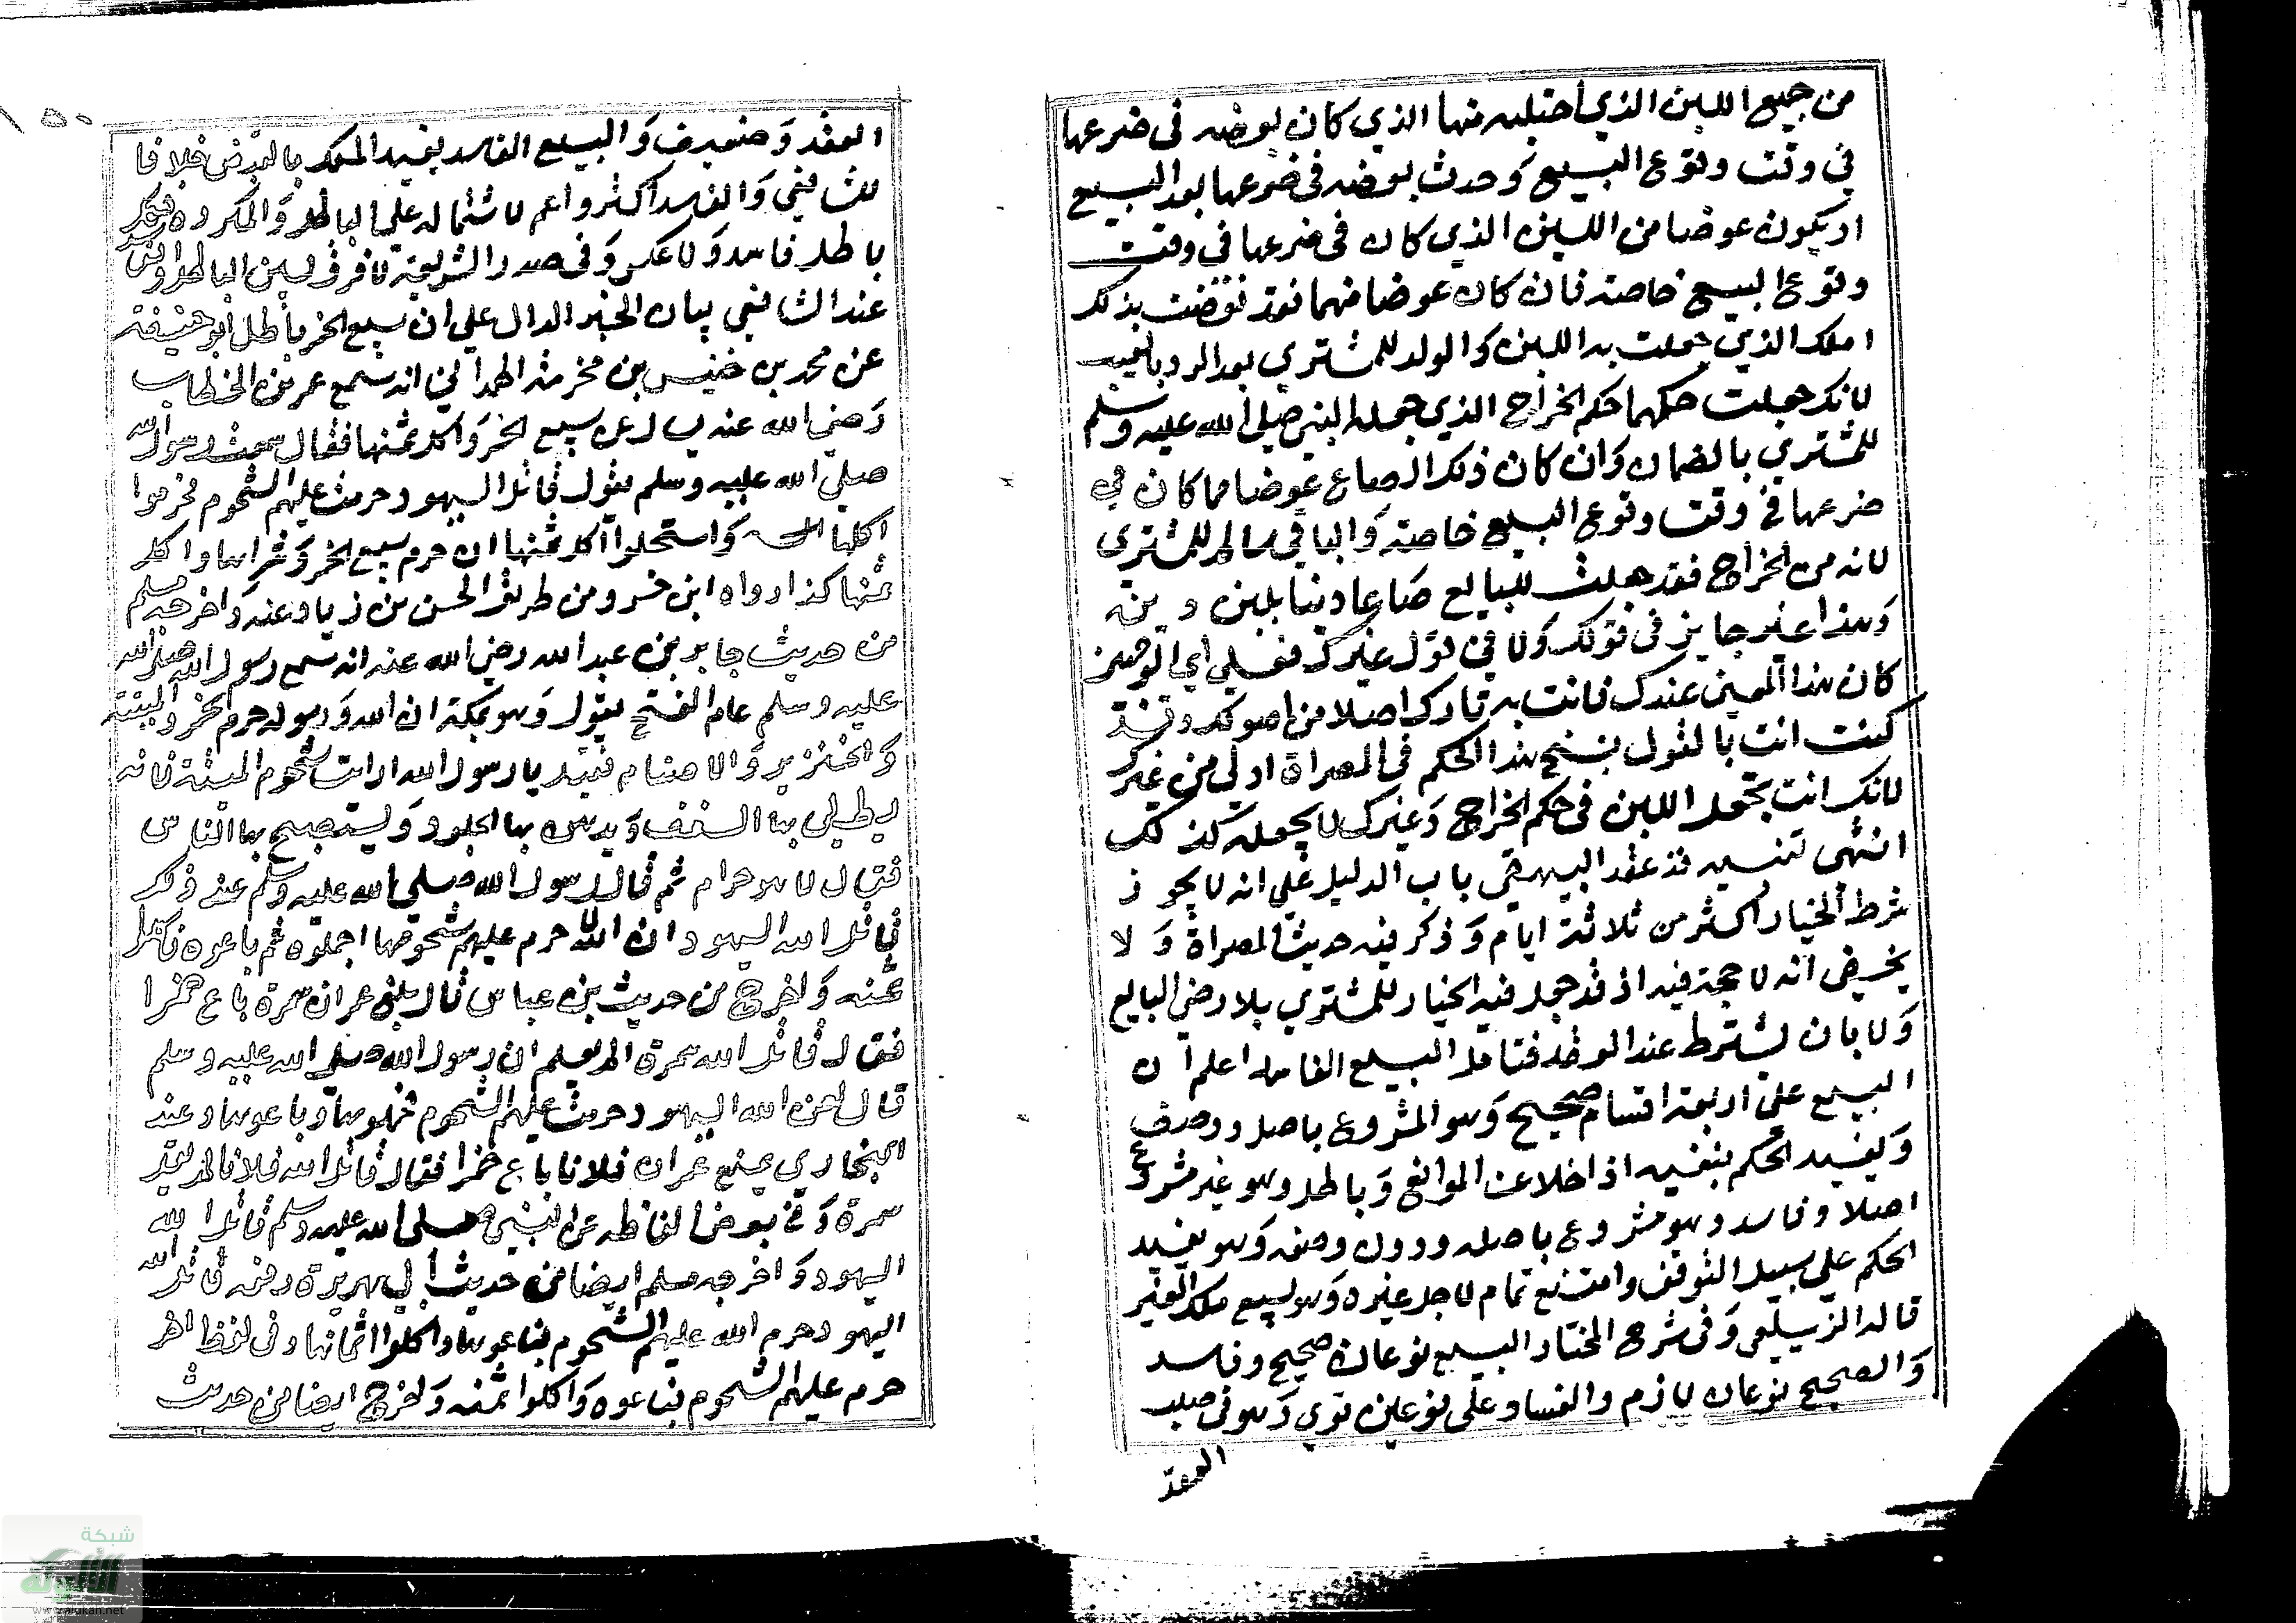 من جميع اللبن الذي احتلبه منها الذي كان بعضه في ضرعها
في وقت وقوع البيع وحدث بعضه في ضرعها بعد البيع
او يكون عوضا من اللبن الذي كان في ضرعها في وقت
وقوع البيع خاصة فان كان عوضا منهما فقد نقضت بذلك
اصلك الذي جعلت به اللبن والولد للمشتري بعد الرد بالعيب
لانك جعلت حكمهما حكم الخراج الذي جعله النبي صلى الله عليه وسلم
للمشتري بالضمان وان كان ذلك الصاع عوضا مما كان في
ضرعها في وقت وقوع البيع خاصة والباقي سالم للمشتري
لانه من الخراج فقد جعلت للبايع صاعا دينا بلبن دين
وهذا غير جايز في قولك ولا في قول غيرك فعلى اي الوجهين
كان هذا المعنى عندك فانت به تارك اصلا من اصولك وقد
كنت انت بالقول بنسخ هذا الحكم في المصراة اولى من غيرك
لانك انت تجعل اللبن في حكم الخراج وغيرك لا يجعله كذلك
انتهى تنبيه قد عقد البيهقي باب الدليل على انه لا يجوز
شرط الخيار اكثر من ثلاثة ايام وذكر فيه حديث المصراة ولا
يخفى انه لا حجة فيه اذ قد جعل فيه الخيار للمشتري بلا رضى البايع
ولا بان يشترط عند العقد فتامل البيع الفاسد اعلم ان
البيع على اربعة اقسام صحيح وهو المشروع باصله ووصفه
ويفيد الحكم بنفسه اذا خلا عن الموانع وباطل وهو غير مشروع
اصلا وفاسد وهو مشروع باصله دون وصفه وهو يفيد
الحكم على سبيل التوقف وامتنع تمام لاجل غيره وهو بيع ملك الغير
قاله الزيلعي وفي شرح المختار البيع نوعان صحيح وفاسد
والصحيح نوعان لازم والفساد على نوعين قوي وهو في صلب
العقد
١٥٠
العقد وضعيف والبيع الفاسد يفيد الملك بالقبض خلافا
للشافعي والفاسد اكثر واعم لاشتماله على الباطل والمكروه فكل
باطل فاسد ولا عكس وفي صدر الشريعة لا فرق بين الباطل والفاسد
عند الشافعي بيان الخبر الدال على ان بيع الخمر باطل أبو حنيفة
عن محمد بن خنيس بن مخرمة الهمداني انه سمع عمر بن الخطاب
رضي الله عنه يسال عن بيع الخمر واكل ثمنها فقال سمعت رسول الله
صلى الله عليه وسلم يقول قاتل اليهود حرمت عليهم الشحوم فحرموا
اكلها واستحلوا اكل ثمنها ان حرم بيع الخمر وشراها واكل
ثمنها كذا رواه ابن خسرو من طريق الحسن بن زياد عنه واخرجه مسلم
من حديث جابر بن عبد الله رضي الله عنه انه سمع رسول الله صلى الله
عليه وسلم عام الفتح يقول وهو بمكة ان الله ورسوله حرم الخمر والميتة
والخنزير والاصنام فقيل يا رسول الله ارايت شحوم الميتة فانه
يطلى بها السفن ويدهن بها الجلود ويستصبح بها الناس
فقال لا هو حرام ثم قال رسول الله صلى الله عليه وسلم عند ذلك
قاتل الله اليهود ان الله حرم عليهم شحومها اجملوه ثم باعوه فاكلوا
ثمنه واخرج من حديث بن عباس قال بلغ عمر ان سمرة باع خمرا
فقال قاتل الله سمرة الم يعلم ان رسول الله صلى الله عليه وسلم
قال لعن الله اليهود حرمت عليهم الشحوم فجملوها وباعوها وعند
البخاري بلغ عمر ان فلانا باع خمرا فقال قاتل الله فلانا لم يقل
سمرة وفي بعض الفاظه عن النبي صلى الله عليه وسلم قاتل الله
اليهود واخرجه مسلم ايضا من حديث أبي هريرة رفعه قاتل الله
اليهود حرم الله عليهم الشحوم فباعوها واكلوا اثمانها وفي لفظ اخر
حرم عليهم الشحوم فباعوه واكلوا ثمنه واخرج ايضا من حديث
شبكة
الألوكة
www.alukah.net